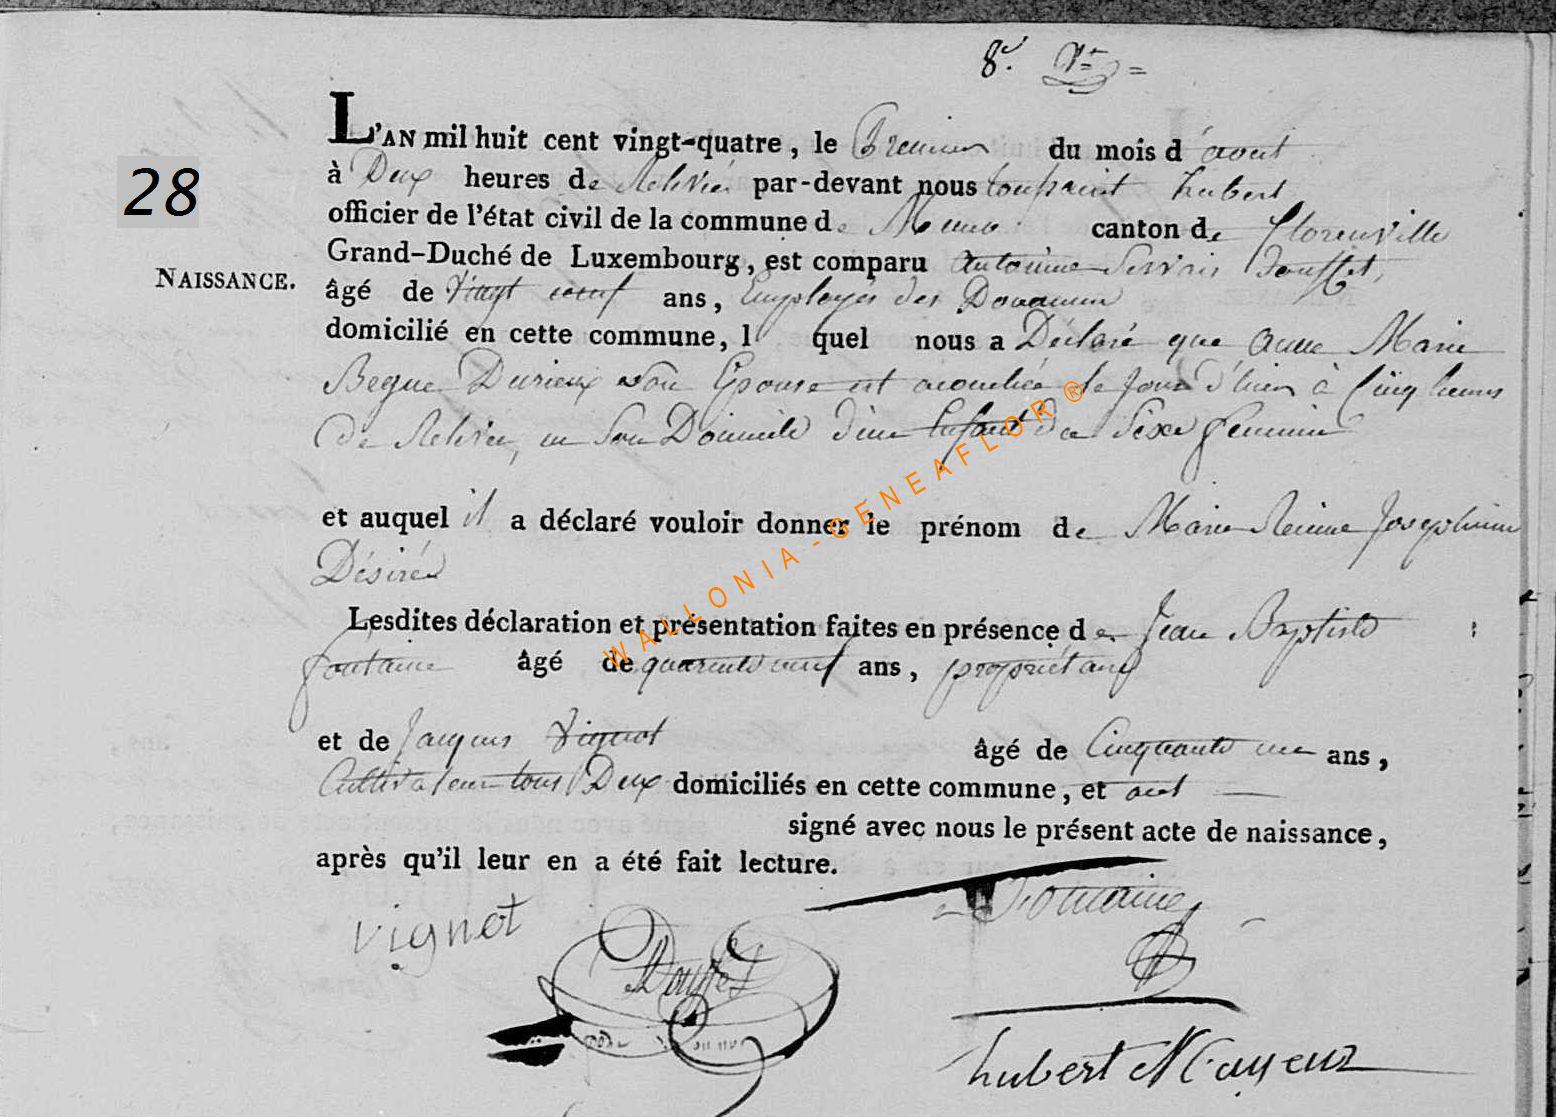 8e. Vt =
L'AN mil huit cent vingt-quatre, le Premier du mois d'aout
28
à Deux heures de Relevée par-devant nous toussaint hubert
officier de l'état civil de la commune de Muno canton de Florenville
Grand-Duché de Luxembourg, est comparu Antoine Servais Douffet,
NAISSANCE.
âgé de Vingt neuf ans, Employés des Douanne
domicilié en cette commune, l quel nous a Déclaré que Anne Marie
Begue Durieux son Epouse est accouchée le jour d'hier à Cinq heures
de Relevée, en son Domicile d'un Enfant du Sexe feminin
et auquel il a déclaré vouloir donner le prénom de Marie Reinne Josephinne
Désirée
Lesdites déclaration et présentation faites en présence de Jean Baptiste
fontaine âgé de quarente neuf ans, propriétaire
et de Jacques Vignot âgé de Cinquante un ans,
Cultivateur tous Deux domiciliés en cette commune, et ont
signé avec nous le présent acte de naissance,
après qu'il leur en a été fait lecture.
Vignot Douffet Fontaine
hubert Mayeur
WALLONIA-GENEAFLOR ®